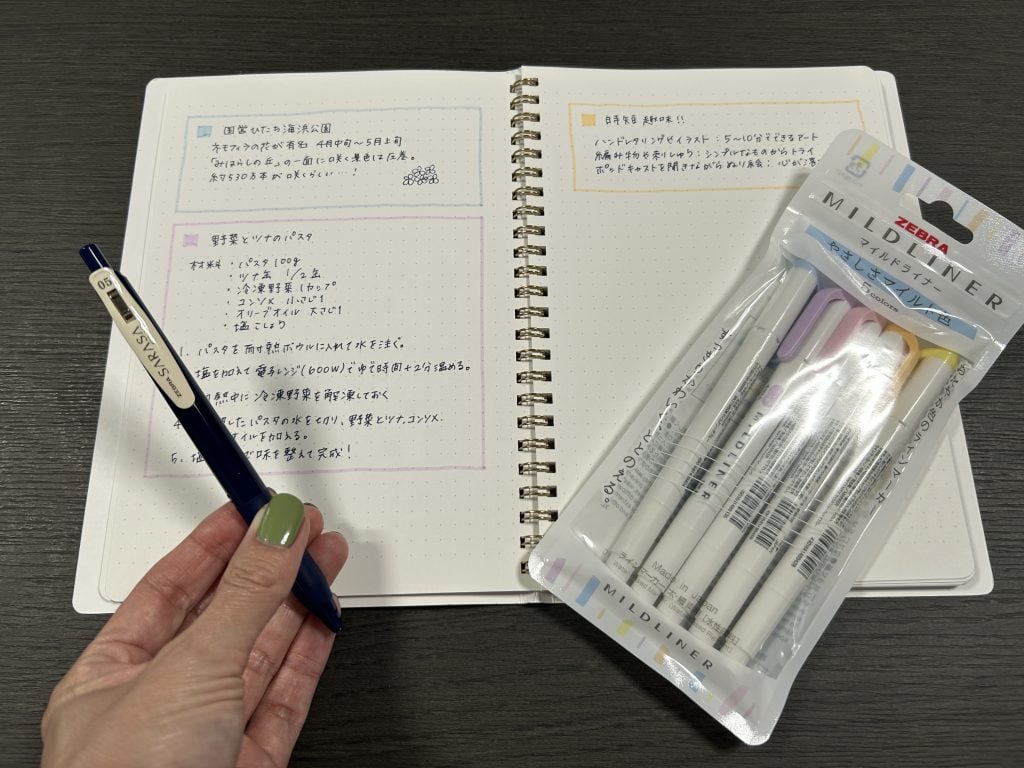 国営ひたち海浜公園
ネモフィラの花が有名 4月中旬〜5月上旬
「みはらしの丘」の一面に咲く景色は圧巻。
約530万本が咲くらしい…!
野菜とツナのパスタ
材料・パスタ100g
・ツナ缶 1/2缶
・冷凍野菜1カップ
・コンソメ 小さじ1
・オリーブオイル 大さじ1
・塩こしょう
1. パスタを耐熱ボウルに入れて水を注ぐ。
塩を加えて電子レンジ(600W)でゆで時間+2分温める。
熱中に冷凍野菜を解凍しておく
したパスタの水を切り、野菜とツナ、コンソメ、
オイルを加える。
5. 塩 で味を整えて完成!
時短趣味!!
ハンドレタリングやイラスト:5〜10分でできるアート
編み物や刺しゅう:シンプルなものからトライ
ポッドキャストを聞きながらぬり絵:心が
05
ZEBRA SARASA
ZEBRA
MILDLINER
マイルドライナー
やさしさマイルド色
5 colors
すっきりかわいく、ととのえる。
おだやか色のラインマーカー
MILDLINER
Made in Japan
MILDLINER